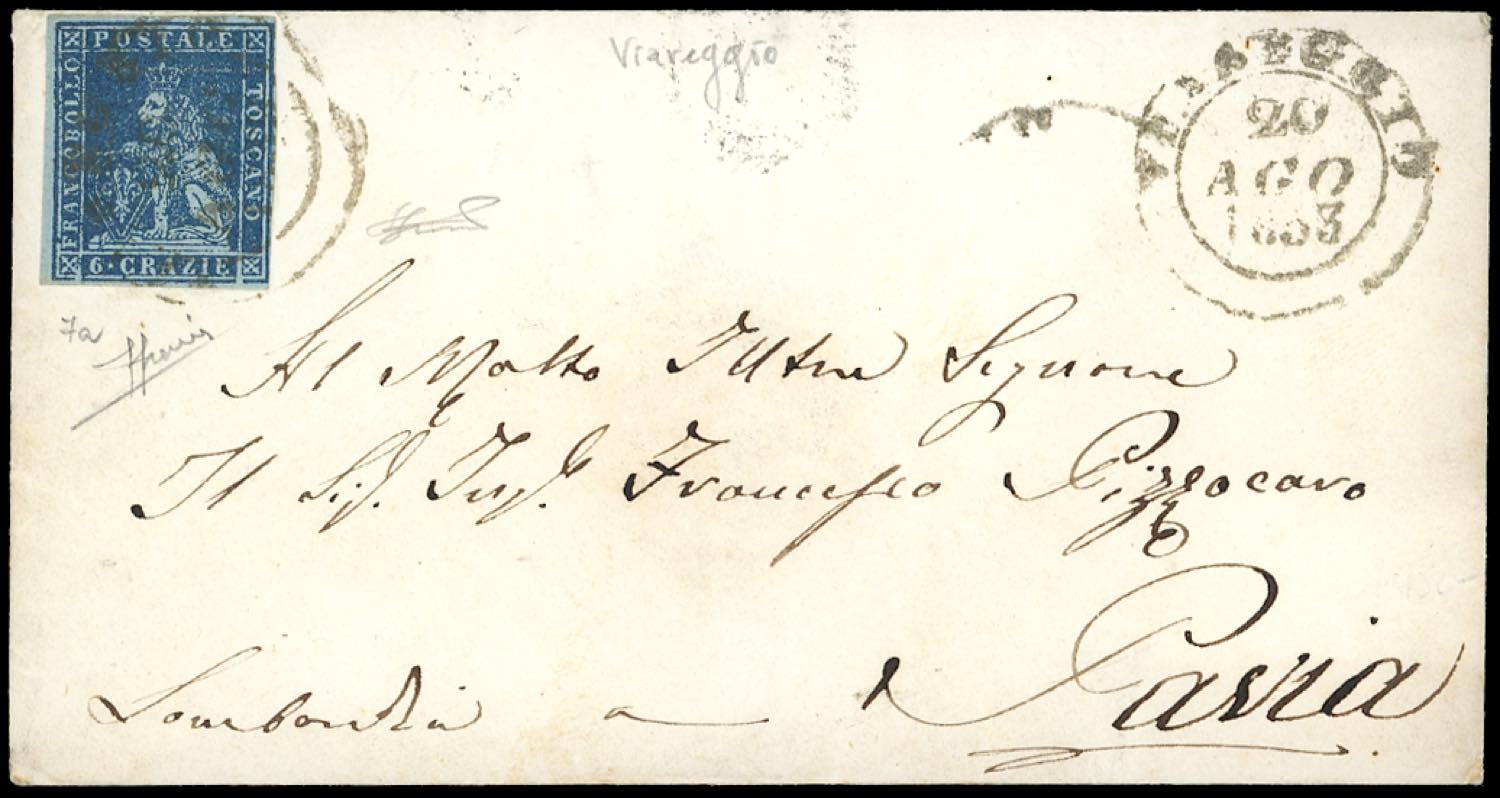 FRANCOBOLLO
POSTALE
TOSCANO
6·CRAZIE
Viareggio
VIAREGGIO
20
AGO
1853
7a
Al Molto Illtre Signore
Il Sig. Ing. Francesco Pizzocaro
Pavia
Lombardia